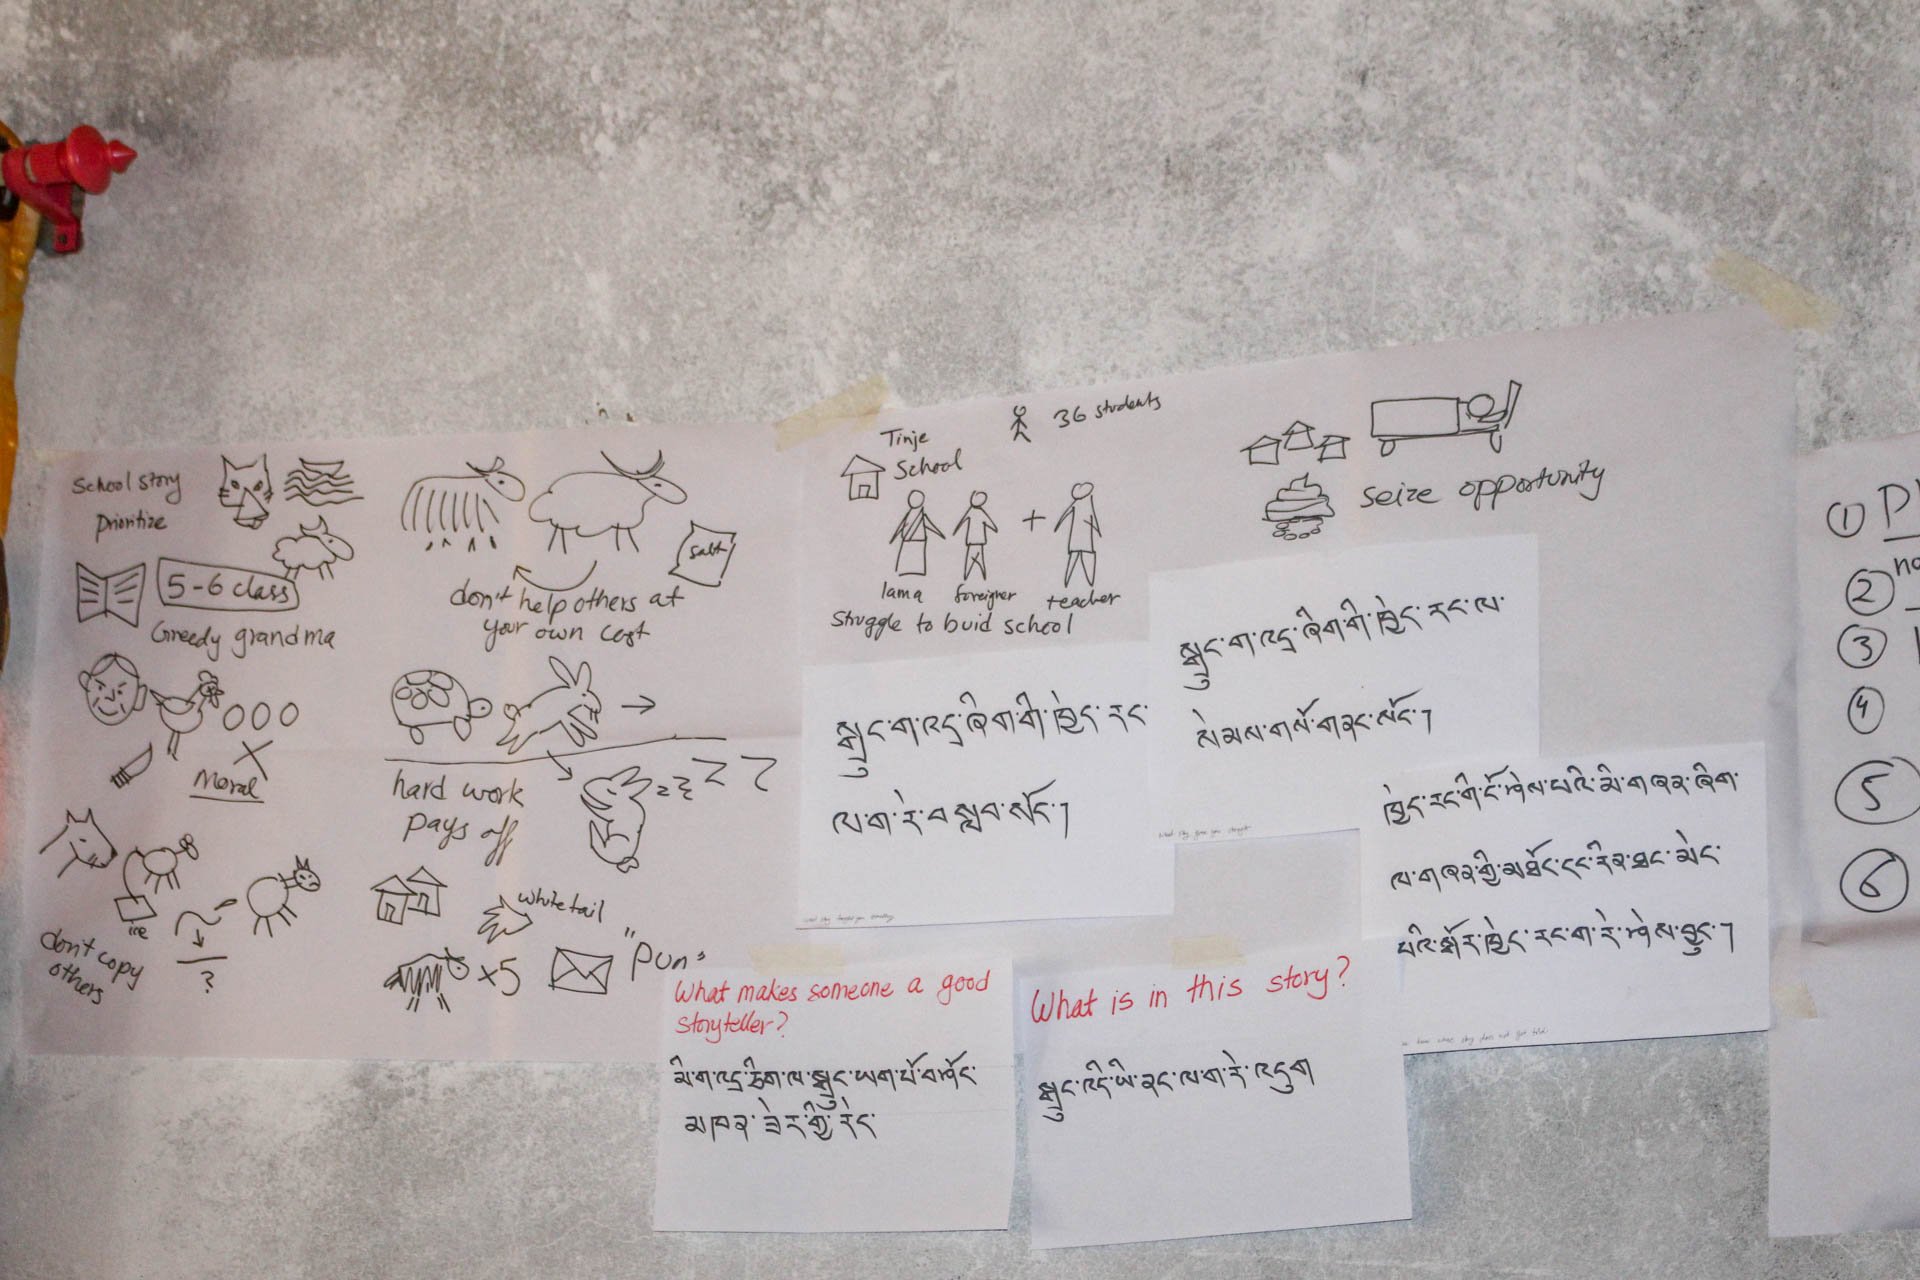 School story
Prioritize
5-6 class
Greedy grandma
Moral
ice
don't copy
others
?
salt
don't help others at
your own cost
hard work
pays off
white tail
x5
"Pun
Tinje
School
36 students
+
lama foreigner teacher
struggle to buid school
seize opportunity
སྒྲུང་ག་འདྲ་ཞིག་གི་ཁྱེད་རང་
ལ་ག་རེ་བསླབ་སོང་།
སྒྲུང་ག་འདྲ་ཞིག་གི་ཁྱེད་རང་ལ་
སེམས་གསོ་གནང་སོང་།
ཁྱེད་རང་གི་ངོ་ཤེས་པའི་མི་གཞན་ཞིག་
ལ་གཞན་གྱི་མཐོང་དང་རིན་ཐང་མེད་
པའི་སྐོར་ཁྱེད་རང་ག་རེ་ཤེས་བྱུང་།
What makes someone a good
storyteller?
མི་ག་འདྲ་ཅིག་ལ་སྒྲུང་ཡག་པོ་བཤོད་
མཁན་ཟེར་གྱི་རེད་
What is in this story?
སྒྲུང་འདི་ཡི་ནང་ལ་ག་རེ་འདུག
1
2
3
4
5
6